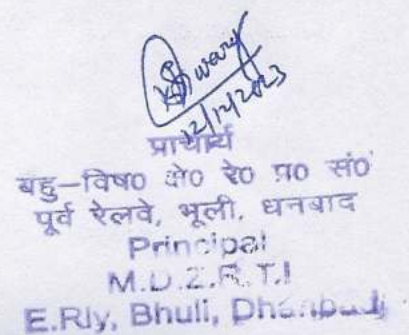 12/12/2023
प्राचार्य
बहु-विष० क्षे० रे० प्र० सं०
पूर्व रेलवे, भूली, धनबाद
Principal
M.D.Z.R.T.I
E.Rly, Bhuli, Dhanbad